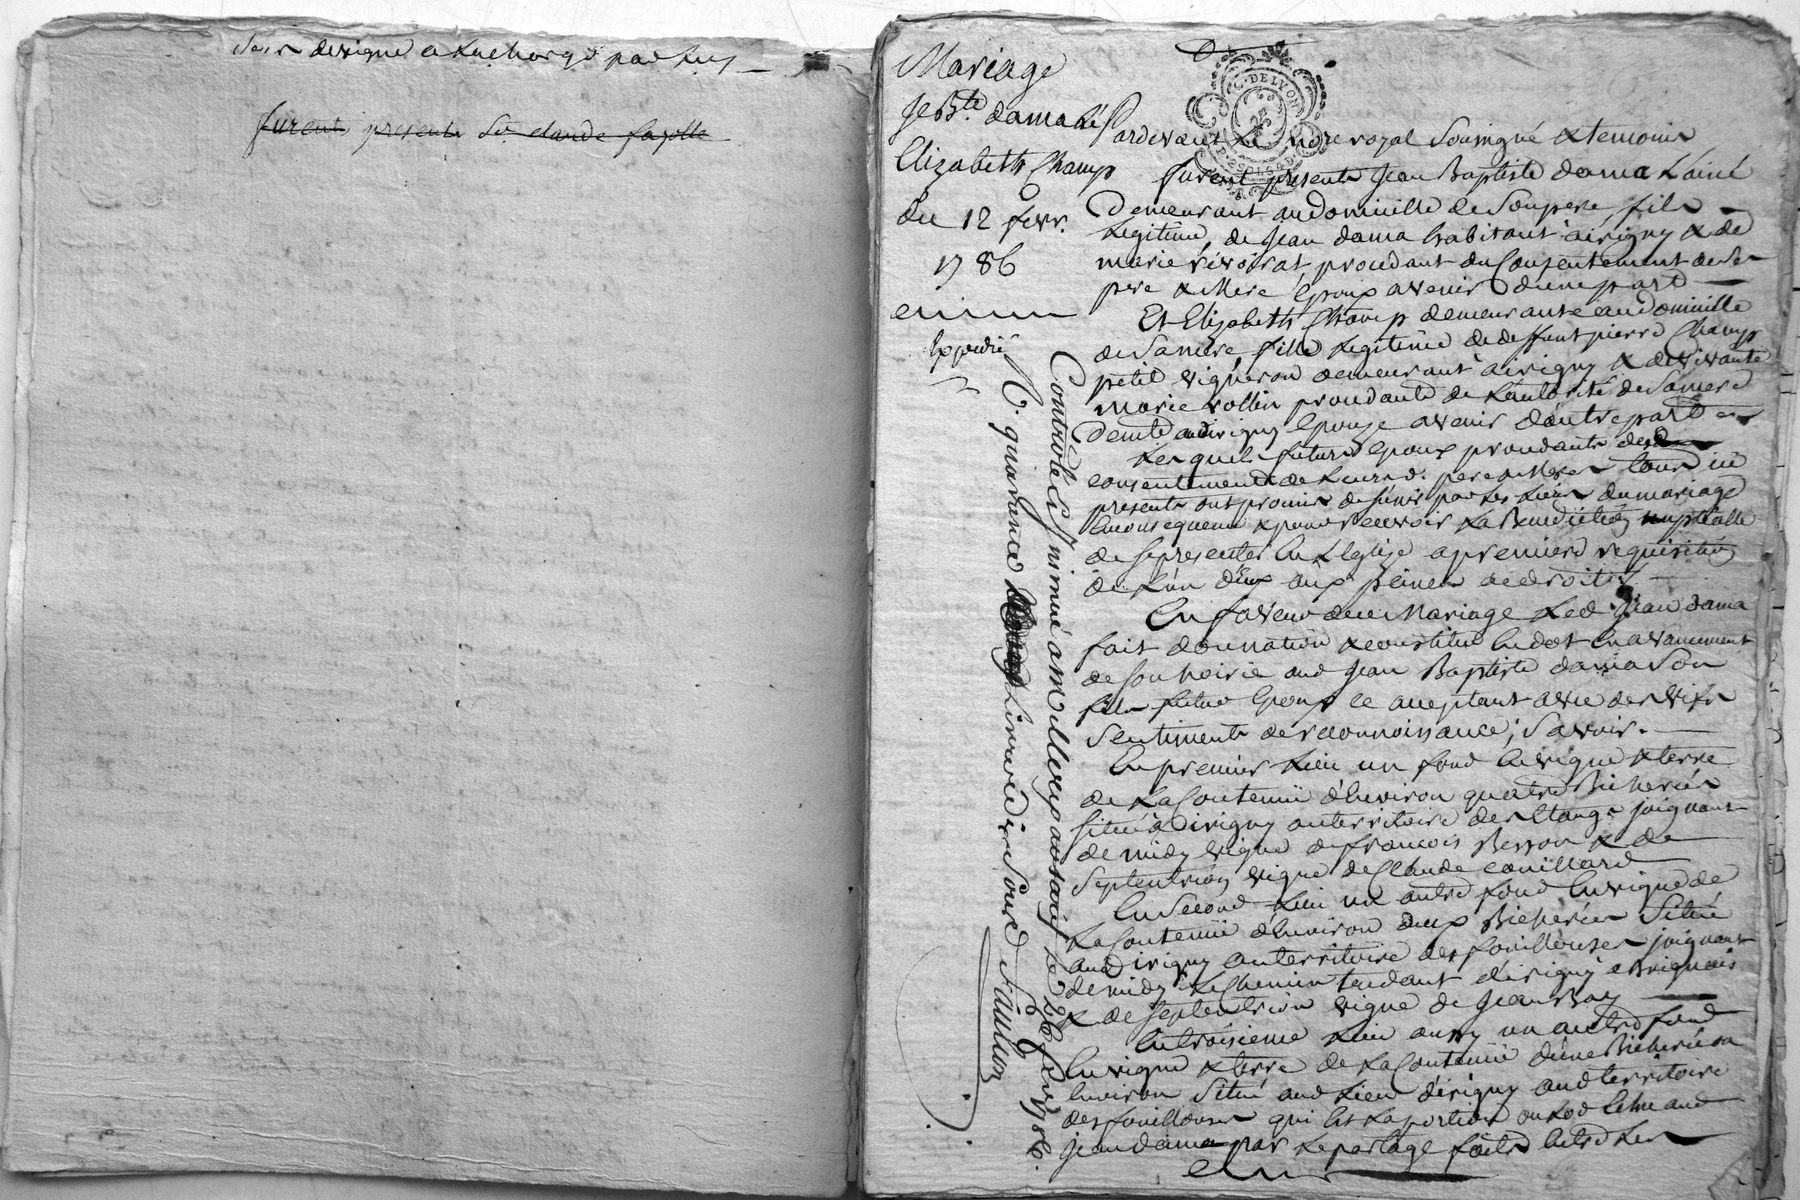 furent presents Sr. claude fayolle
Mariage
Je Bte. dama &
Elizabeth Champ
du 12 fevr.
1786
Expedié
C. DE LYON
Pardevant Le no.re royal Soussigné & temoins
furent presents Jean Baptiste dama Lainé
Demeurant au domicille de Son pere, fils
Legitime, de Jean dama habitant a irigny & de
marie révoirat, procedant du Consentement de Ses
pere & Mere Epoux avenir d'une part
Et Elizabeth Champ demeurante au domicille
de Sa mere, fille Legitime de deffunt pierre Champ
petit vigneron demeurant a irigny & de vivante
Marie rollin procedante de L'autorité de Sa mere
demte. aud. irigny Epouse avenir d'autre part
Lesquels futurs Epoux procedants
consentement de Leursd. pere & Mere tous ici
presents ont promis de s'unir par Les Liens du mariage
En consequence & pour recevoir La Benediction nuptialle
de se presenter En L'Eglise a premiere requisition
de L'un d'eux aux peines de droit
En faveur de ce Mariage Led. Jean dama
fait donnation & constitue En dot En avancement
de son hoirie aud. Jean Baptiste dama Son
fils futur Epoux ce acceptant avec des vifs
Sentiments de reconnoissance; Savoir.
En premier Lieu un fond En vigne & terre
de La Contenue d'Environ quatre Bicherées
Situé a irigny au territoire de Etangs joignant
de midy vigne de francois Besson & de
Septentrion vigne de Claude couillard
En Second Lieu un autre fond En vigne de
La Contenue d'Environ deux Bicherées Situé
aud. irigny au territoire des fouilleuses joignant
de midy Le Chemin tendant d'irigny a Brignais
& de Septentrion vigne de Jean Ray
En troisieme Lieu aussy un autre fond
En vigne & terre de La Contenue d'une Bicherée ou
Environ Situé aud. Lieu d'irigny aud. territoire
des fouilleuses qui Est La portion ou Lot Echu aud.
Jean dama par Le partage fait Entre Les
Contrôlé à St. Genis Le 26 fevr. 1786.
R. quarante Livres dix Sous